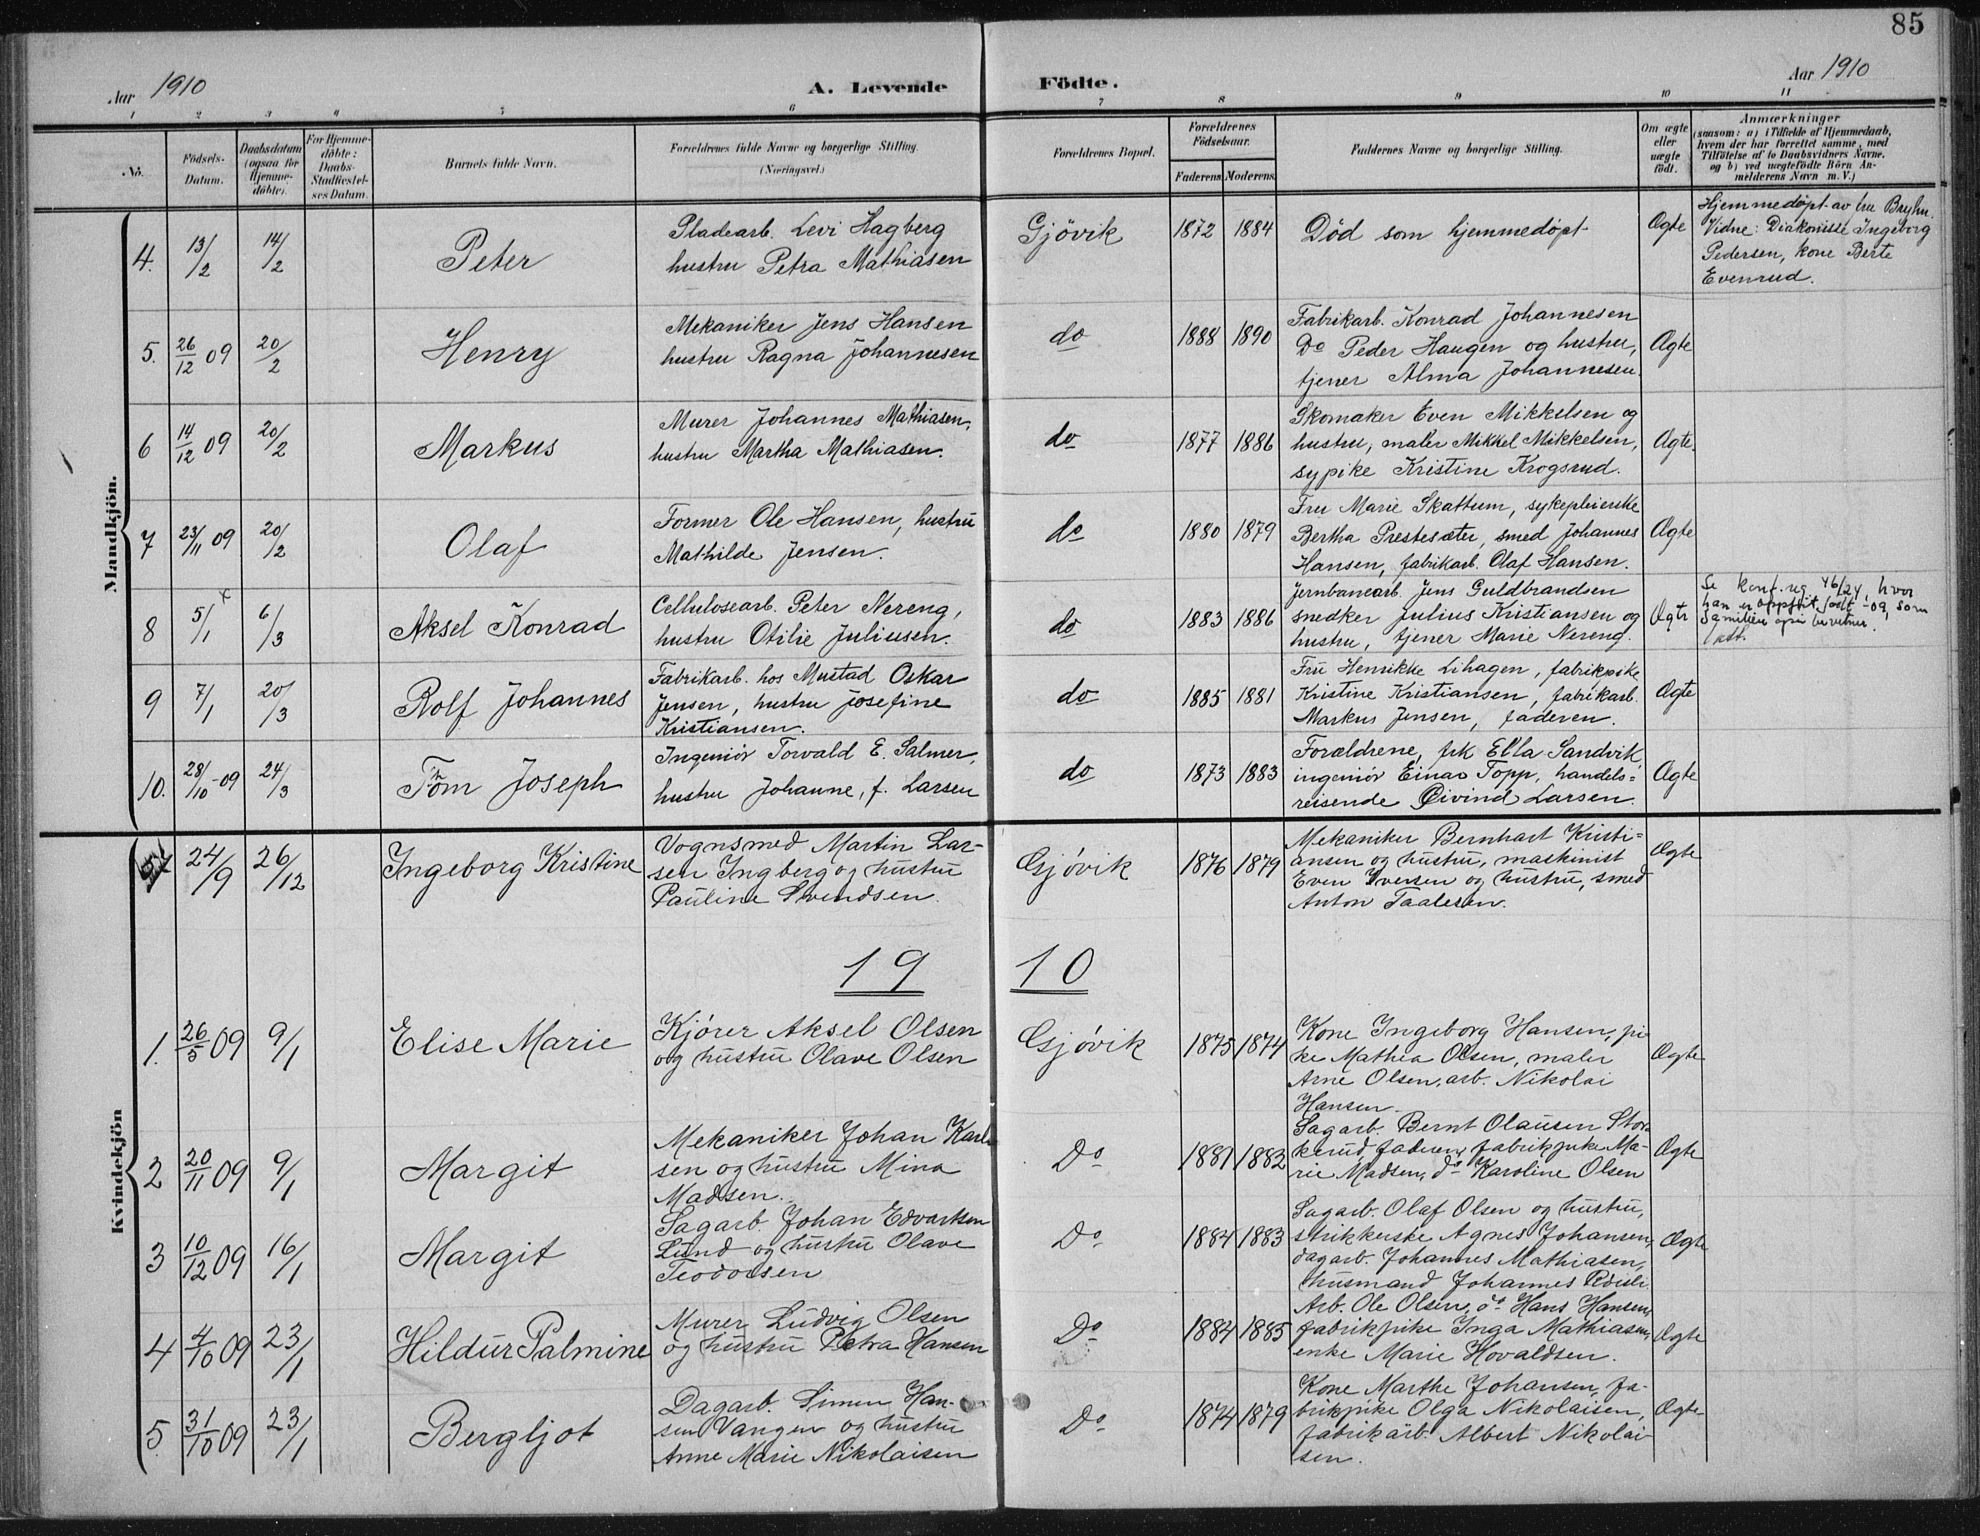 85
Aar 1910
A. Levende Födte.
Aar 1910
1 2 3 4 5 6 7 8 9 10 11
No.
Födsels-
Datum.
Daabsdatum
(ogsaa for
Hjemme-
döbte).
For Hjemme-
döbte:
Daabs-
Stadfæstel-
ses Datum.
Barnets fulde Navn.
Forældrenes fulde Navne og borgerlige Stilling.
(Næringsvei.)
Forældrenes Bopæl.
Forældrenes
Födselsaar.
Faderens Moderens
Faddernes Navne og borgerlige Stilling.
Om ægte
eller
uægte
födt.
Anmærkninger
(saasom: a) i Tilfælde af Hjemmedaab,
hvem der har forrettet samme, med
Tilföielse af to Daabsvidners Navne,
og b) ved uægtefödte Börn An-
melderens Navn m. V.)
Mandkjön.
4. 13/2 14/2 Peter
Pladearb. Levi Hagberg
hustru Petra Mathiasen
Gjövik 1872 1884
Død som hjemmedøpt
Ægte
Hjemmedøpt av fru Bryhn.
Vidne: Diakonisse Ingeborg
Pedersen, kone Berte
Evenrud.
5. 26/12 09 20/2 Henry
Mekaniker Jens Hansen
hustru Ragna Johannesen
do 1888 1890
Fabrikarb. Konrad Johannesen
Do Peder Haugen og hustru,
tjener Alma Johannesen.
Ægte
6 14/12 09 20/2 Markus
Murer Johannes Mathiasen,
hustru Martha Mathiasen.
do 1877 1886
Skomaker Even Mikkelsen og
hustru, maler Mikkel Mikkelsen,
sypike Kristine Krogsrud.
Ægte.
7 23/11 09 20/2 Olaf
Former Ole Hansen, hustru
Mathilde Jensen.
do 1880 1879
Fru Marie Skattum, sykepleierske
Bertha Prestesæter, smed Johannes
Hansen, fabrikarb. Olaf Hansen.
Ægte
8 5/1 x 6/3 Aksel Konrad
Cellulosearb. Peter Nereng,
hustru Otilie Juliusen.
do 1883 1886
Jernbanearb. Jens Guldbrandsen
snedker Julius Kristiansen og
hustru, tjener Marie Nereng.
Ægte
Se konf. reg. 46/24, hvor
han er opført født -09, som
familien
9 7/1 20/3 Rolf Johannes
Fabrikarb. hos Mustad Oskar
Jensen, hustru Josefine
Kristiansen.
do 1885 1881
Fru Henrikke Lihagen, fabrikpike
Kristine Kristiansen, fabrikarb.
Markus Jensen, faderen.
Ægte
10. 28/10 -09 24/3 Tom Joseph
Ingeniør Torvald E. Salmer,
hustru Johanne, f. Larsen
do 1873 1883
Forældrene, frk Ella Sandvik,
ingeniør Einar Topp, handels-
reisende Øivind Larsen.
Ægte
Kvindekjön
24/9 26/12 Ingeborg Kristine
Vognsmed Martin Lar-
sen Ingberg og hustru
Pauline Svendsen.
Gjøvik 1876 1879
Mekaniker Bernhart Kristi-
ansen og hustru, maskinist
Even Iversen og hustru, smed
Anton Taalesen.
Ægte
19 10
1. 26/5 09 9/1 Elise Marie
Kjører Aksel Olsen
og hustru Olave Olsen
Gjøvik 1875 1874
Kone Ingeborg Hansen, pi-
ke Mathea Olsen, maler
Arne Olsen, arb. Nikolai
Hansen.
Ægte
2 20/11 09 9/1 Margit
Mekaniker Johan Karl-
sen og hustru Mina
Madsen.
Do 1881 1882
Sagarb. Bernt Olausen Stor-
kerud, faderen, fabrikpike Ma-
rie Madsen, do Karoline Olsen
Ægte
3 10/12 09 16/1 Margit
Sagarb. Johan Edvartsen
Lund og hustru Olave
Teodorsen
Do 1884 1883
Sagarb. Olaf Olsen og hustru,
strikkerske Agnes Johansen,
dagarb. Johannes Mathiasen,
husmand Johannes Røisli
Ægte
4 4/10 09 23/1 Hildur Palmine
Murer Ludvig Olsen
og hustru Petra Hansen
Do 1884 1885
Arb. Ole Olsen, do Hans Hansen,
fabrikpike Inga Mathiasen,
enke Marie Hovaldsen.
Ægte
5. 31/10 09 23/1 Bergljot
Dagarb. Simen Han-
sen Vangen og hustru
Anne Marie Nikolaisen
Do 1874 1879
Kone Marthe Johansen, fa-
brikpike Olga Nikolaisen,
fabrikarb. Albert Nikolai-
sen.
Ægte